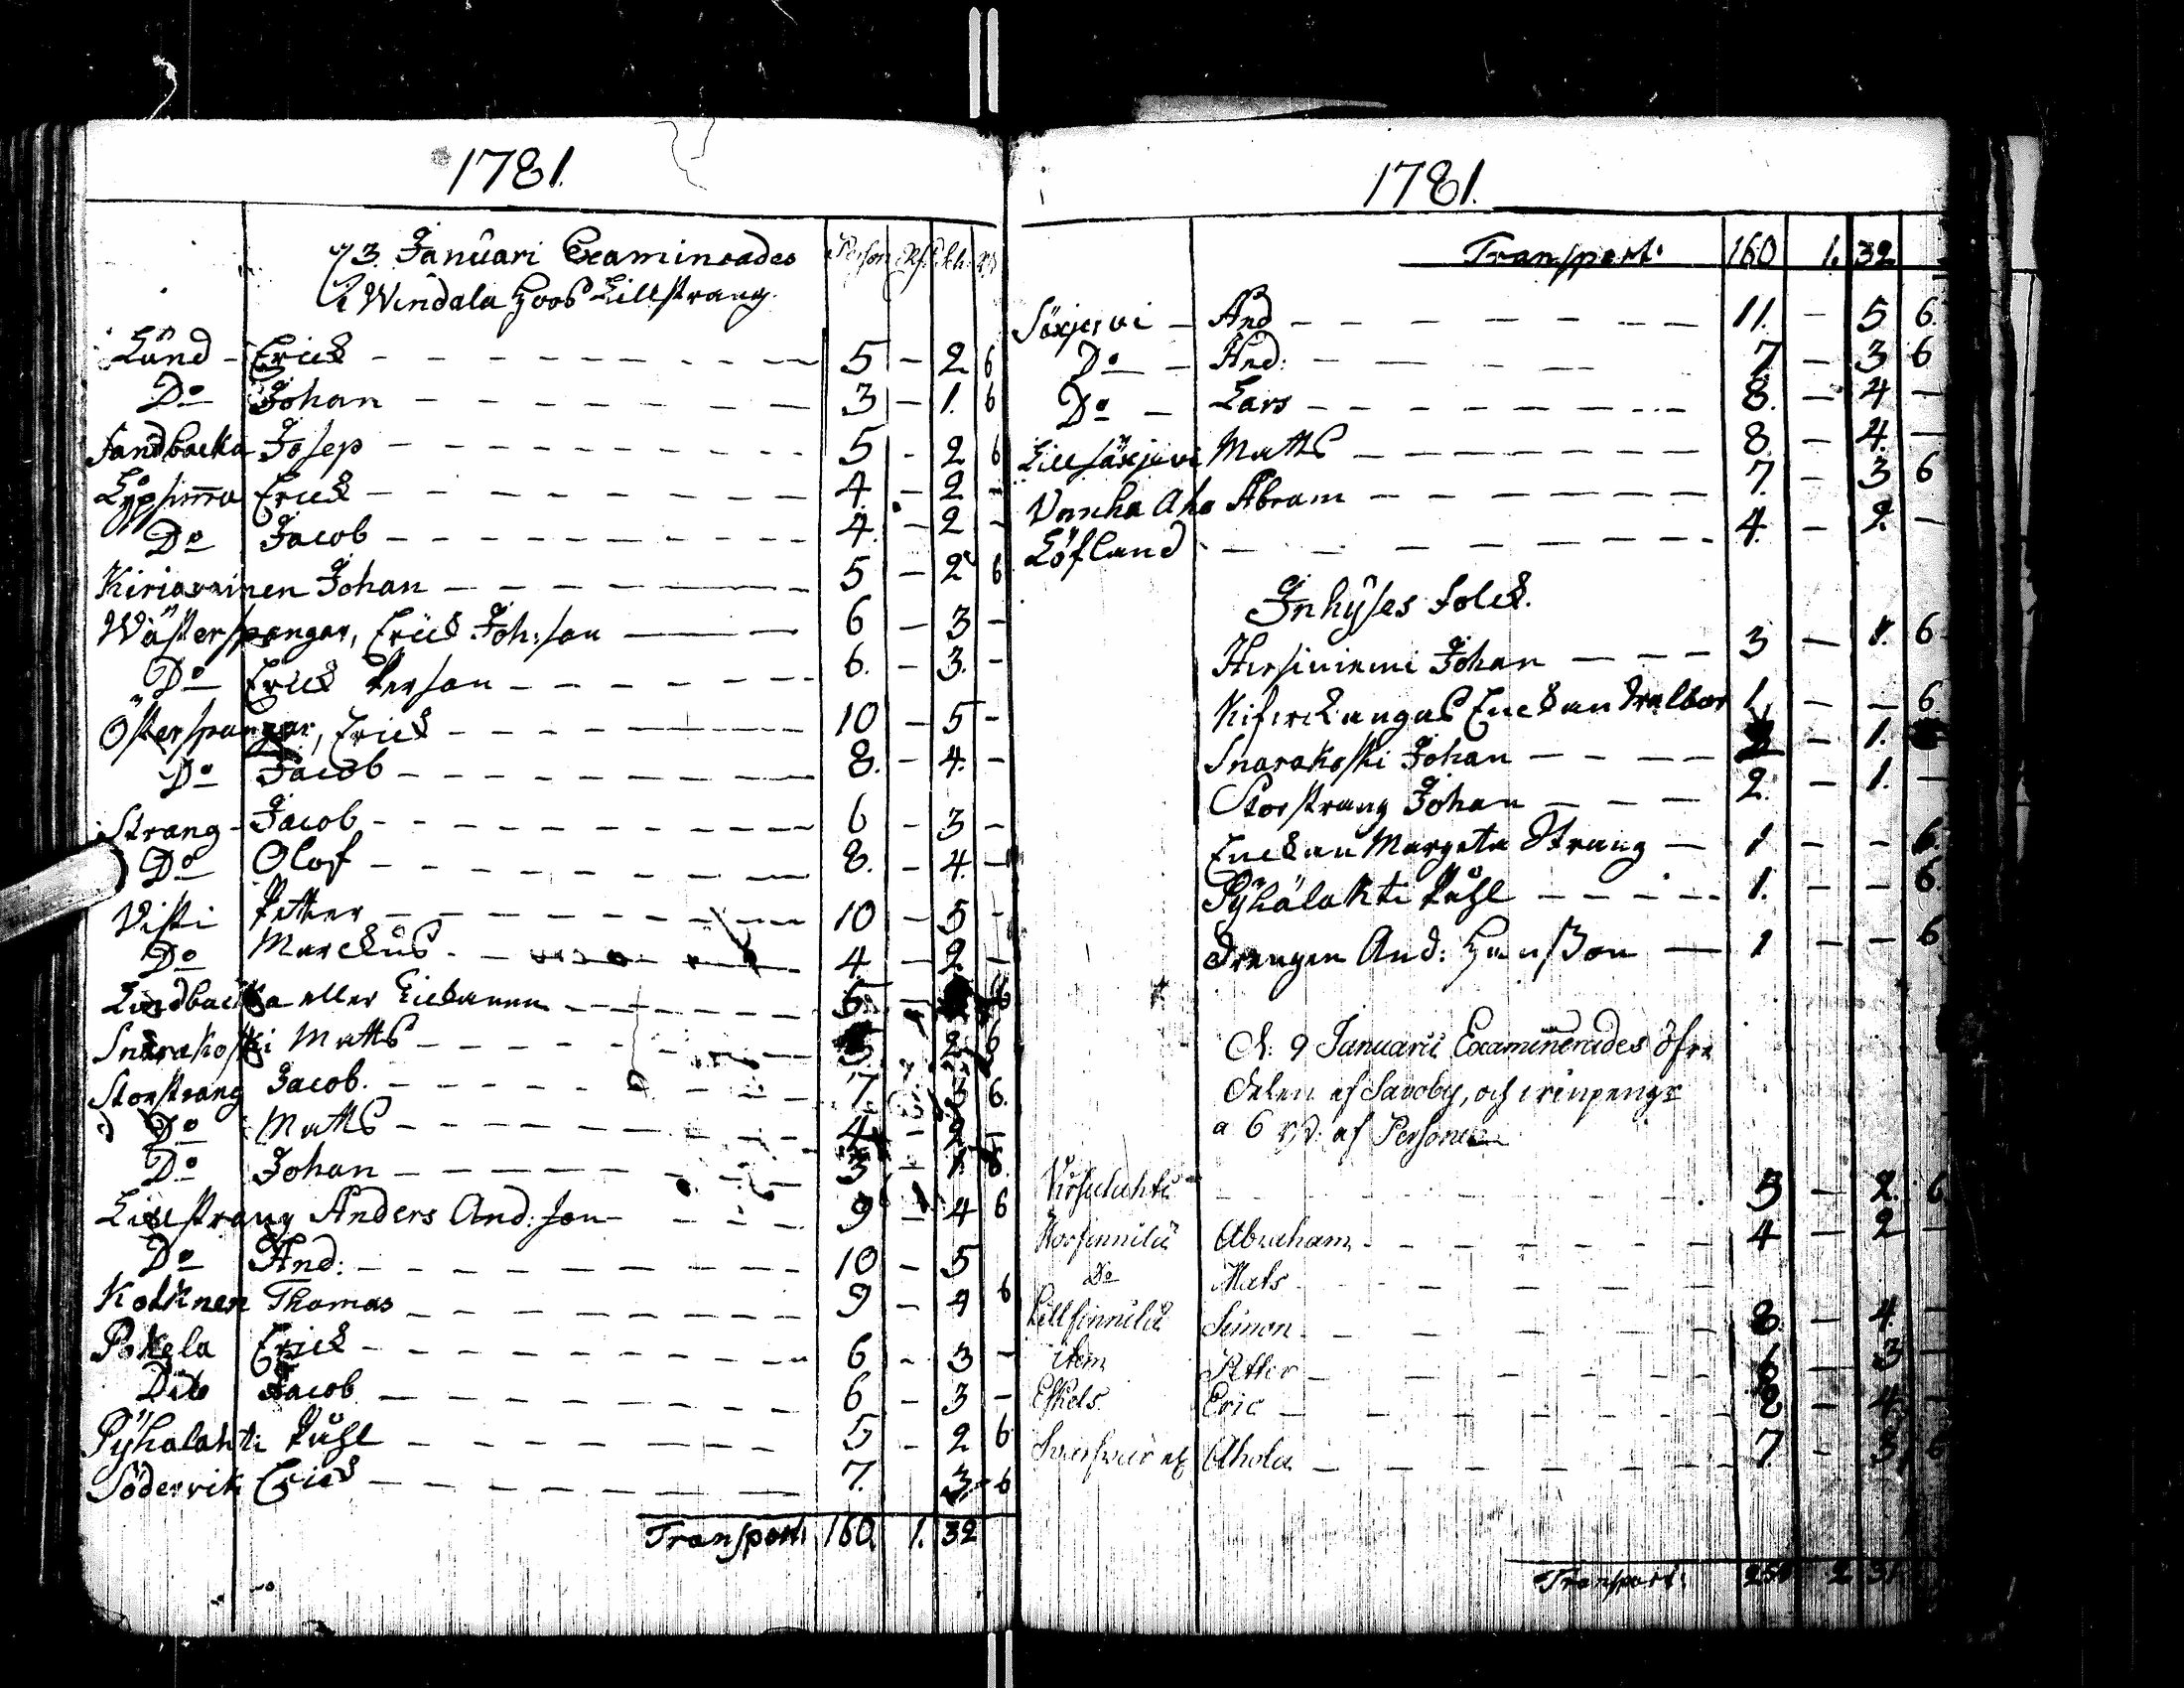 1781.
d. 3. Januari Examinerades Person Rd. sch. rst
i Windala hoos Lillstrang.
Lund - Erick - 5 - 2 6
Do Johan - 3 - 1. 6
Sandbacka Josep - 5 - 2 6
Lypsimma Erick - 4. - 2 -
Do Jacob - 4. - 2 -
Kiriavainen Johan - 5 - 2 6
Wästerspangar, Erick Joh:son - 6 - 3 -
Do Erick Person - 6. - 3. -
Österspangar, Erick - 10 - 5 -
Do Jacob - 8. - 4. -
Strang - Jacob - 6 - 3 -
Do Olof - 8. - 4. -
Visti Petter - 10 - 5 -
Do Marckus. - 4. - 2. -
Lindbacka eller - 5. - 6
Snarakoski Matts - 2 6
Storstrang Jacob. - 7. 3 6.
Do Matts - 4 - 2 -
Do Johan - 3 - 1. 6.
Lillstrang Anders And:son - 9 - 4 6
Do And: - 10 - 5
Kotknen Thomas - 9 - 4 6
Pokela Erick - 6 - 3 -
Dito Jacob - 6 - 3 -
Pyhalahti Påhl - 5 - 2 6
Södervik Erick - 7. 3. - 6
Transport: 160. 1. 32
1781.
Transport: 160 1. 32
Säxjervi - And - 11. - 5 6.
Do - And: - 7. - 3 6
Do - Lars - 8. - 4 -
Lillsäxjervi Matts - 8. - 4. -
Vanha Aho Abram - 7. - 3 6
Löfland - 4. - 2. -
Inhyses folck.
Hirsiniemi Johan - 3 - 1. 6
Enckan 1. - - 6.
Snarakoski Johan - - 1.
Storstrang Johan - 2. - 1. -
Enckan Margeta Strang - 1 - - 6.
Pyhälahti Påhl - 1. - - 6.
Drengen And: Hansson - 1 - - 6
d: 9 Januarii Examinerades öfre
Delen af Savoby, och
a 6 rst: af Personen
- 5 - 2. 6
Storfinnilä Abraham - 4 - 2 -
Do Mats -
Lillfinnilä Simon - 8. - 4. -
item Petter - 6 - 3 -
Eskels Eric - 8 - 4. -
Ahola - 7 - 3 6
Transport: 2